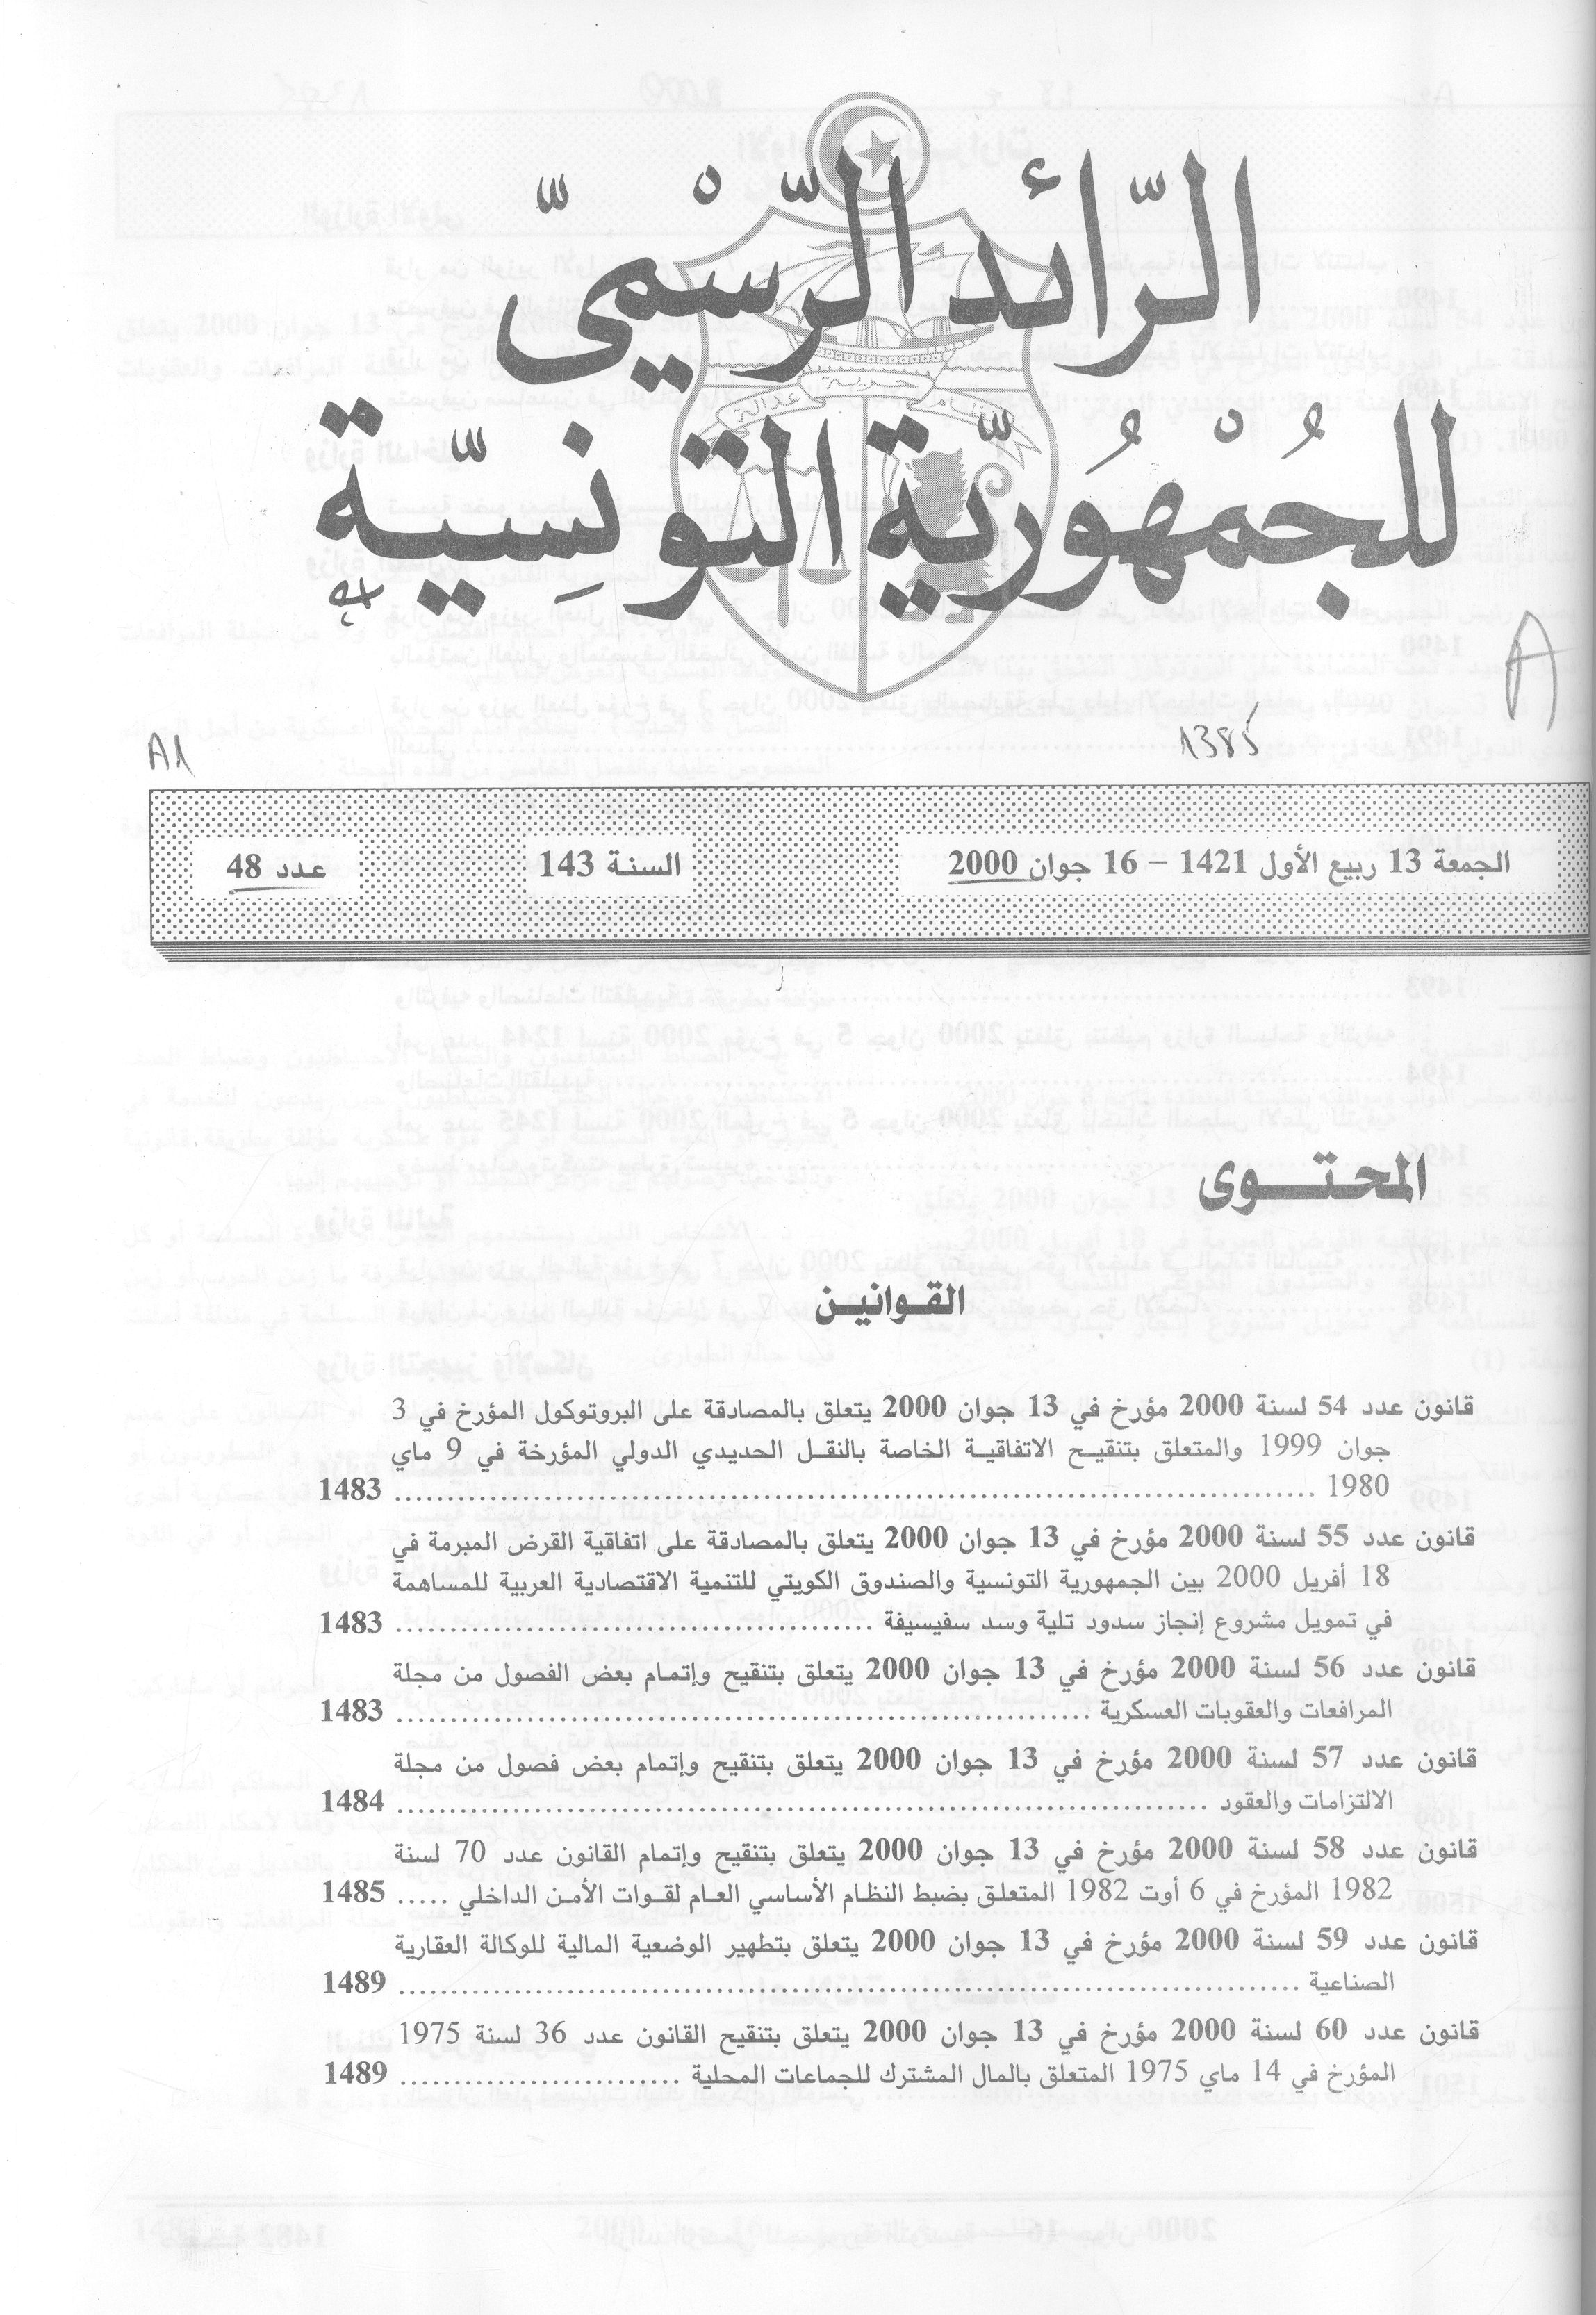 الرّائد الرّسْميّ
نظام حرية عدالة
للجُمْهُوريّة التّونِسيّة
A
A1
1385
الجمعة 13 ربيع الأول 1421 – 16 جوان 2000
السنة 143
عدد 48
المحتوى
القوانين
قانون عدد 54 لسنة 2000 مؤرخ في 13 جوان 2000 يتعلق بالمصادقة على البروتوكول المؤرخ في 3
جوان 1999 والمتعلق بتنقيح الاتفاقية الخاصة بالنقل الحديدي الدولي المؤرخة في 9 ماي
1980 ........ 1483
قانون عدد 55 لسنة 2000 مؤرخ في 13 جوان 2000 يتعلق بالمصادقة على اتفاقية القرض المبرمة في
18 أفريل 2000 بين الجمهورية التونسية والصندوق الكويتي للتنمية الاقتصادية العربية للمساهمة
في تمويل مشروع إنجاز سدود تلية وسد سفيسيفة ........ 1483
قانون عدد 56 لسنة 2000 مؤرخ في 13 جوان 2000 يتعلق بتنقيح وإتمام بعض الفصول من مجلة
المرافعات والعقوبات العسكرية ........ 1483
قانون عدد 57 لسنة 2000 مؤرخ في 13 جوان 2000 يتعلق بتنقيح وإتمام بعض فصول من مجلة
الالتزامات والعقود ........ 1484
قانون عدد 58 لسنة 2000 مؤرخ في 13 جوان 2000 يتعلق بتنقيح وإتمام القانون عدد 70 لسنة
1982 المؤرخ في 6 أوت 1982 المتعلق بضبط النظام الأساسي العام لقوات الأمن الداخلي ..... 1485
قانون عدد 59 لسنة 2000 مؤرخ في 13 جوان 2000 يتعلق بتطهير الوضعية المالية للوكالة العقارية
الصناعية ........ 1489
قانون عدد 60 لسنة 2000 مؤرخ في 13 جوان 2000 يتعلق بتنقيح القانون عدد 36 لسنة 1975
المؤرخ في 14 ماي 1975 المتعلق بالمال المشترك للجماعات المحلية ........ 1489